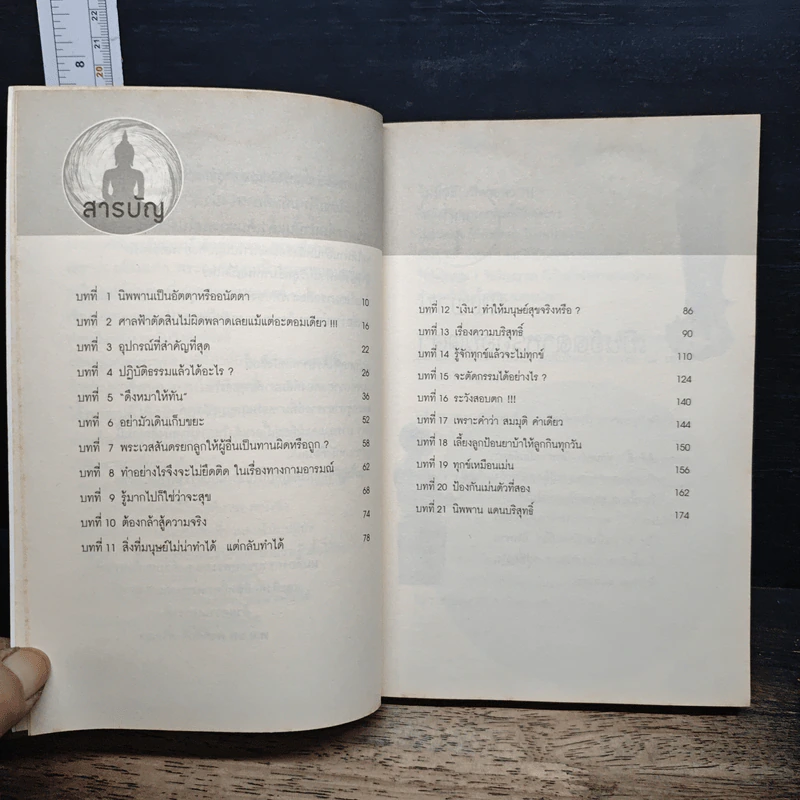 สารบัญ
บทที่ 1 นิพพานเป็นอัตตาหรืออนัตตา 10
บทที่ 2 ศาลฟ้าตัดสินไม่ผิดพลาดเลยแม้แต่อะตอมเดียว !!! 16
บทที่ 3 อุปกรณ์ที่สำคัญที่สุด 22
บทที่ 4 ปฏิบัติธรรมแล้วได้อะไร ? 26
บทที่ 5 "ดึงหมาให้ทัน" 36
บทที่ 6 อย่ามัวเดินเก็บขยะ 52
บทที่ 7 พระเวสสันดรยกลูกให้ผู้อื่นเป็นทานผิดหรือถูก ? 58
บทที่ 8 ทำอย่างไรจึงจะไม่ยึดติด ในเรื่องทางกามอารมณ์ 62
บทที่ 9 รู้มากไปก็ใช่ว่าจะสุข 68
บทที่ 10 ต้องกล้าสู้ความจริง 74
บทที่ 11 สิ่งที่มนุษย์ไม่น่าทำได้ แต่กลับทำได้ 78
บทที่ 12 "เงิน" ทำให้มนุษย์สุขจริงหรือ ? 86
บทที่ 13 เรื่องความบริสุทธิ์ 90
บทที่ 14 รู้จักทุกข์แล้วจะไม่ทุกข์ 110
บทที่ 15 จะตัดกรรมได้อย่างไร ? 124
บทที่ 16 ระวังสอบตก !!! 140
บทที่ 17 เพราะคำว่า สมมุติ คำเดียว 144
บทที่ 18 เลี้ยงลูกป้อนยาบ้าให้ลูกกินทุกวัน 150
บทที่ 19 ทุกข์เหมือนเม่น 156
บทที่ 20 ป้องกันเม่นตัวที่สอง 162
บทที่ 21 นิพพาน แดนบริสุทธิ์ 174
8
22
21
20